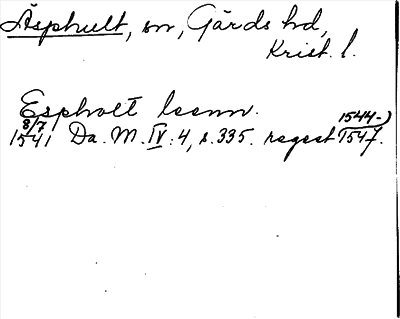 Äsphult, sn, Gärds hd,
Krist. l.
Espholt leenn.
8/7 1541 Da. M. IV: 4, s. 335. regest 1544-) 1547.